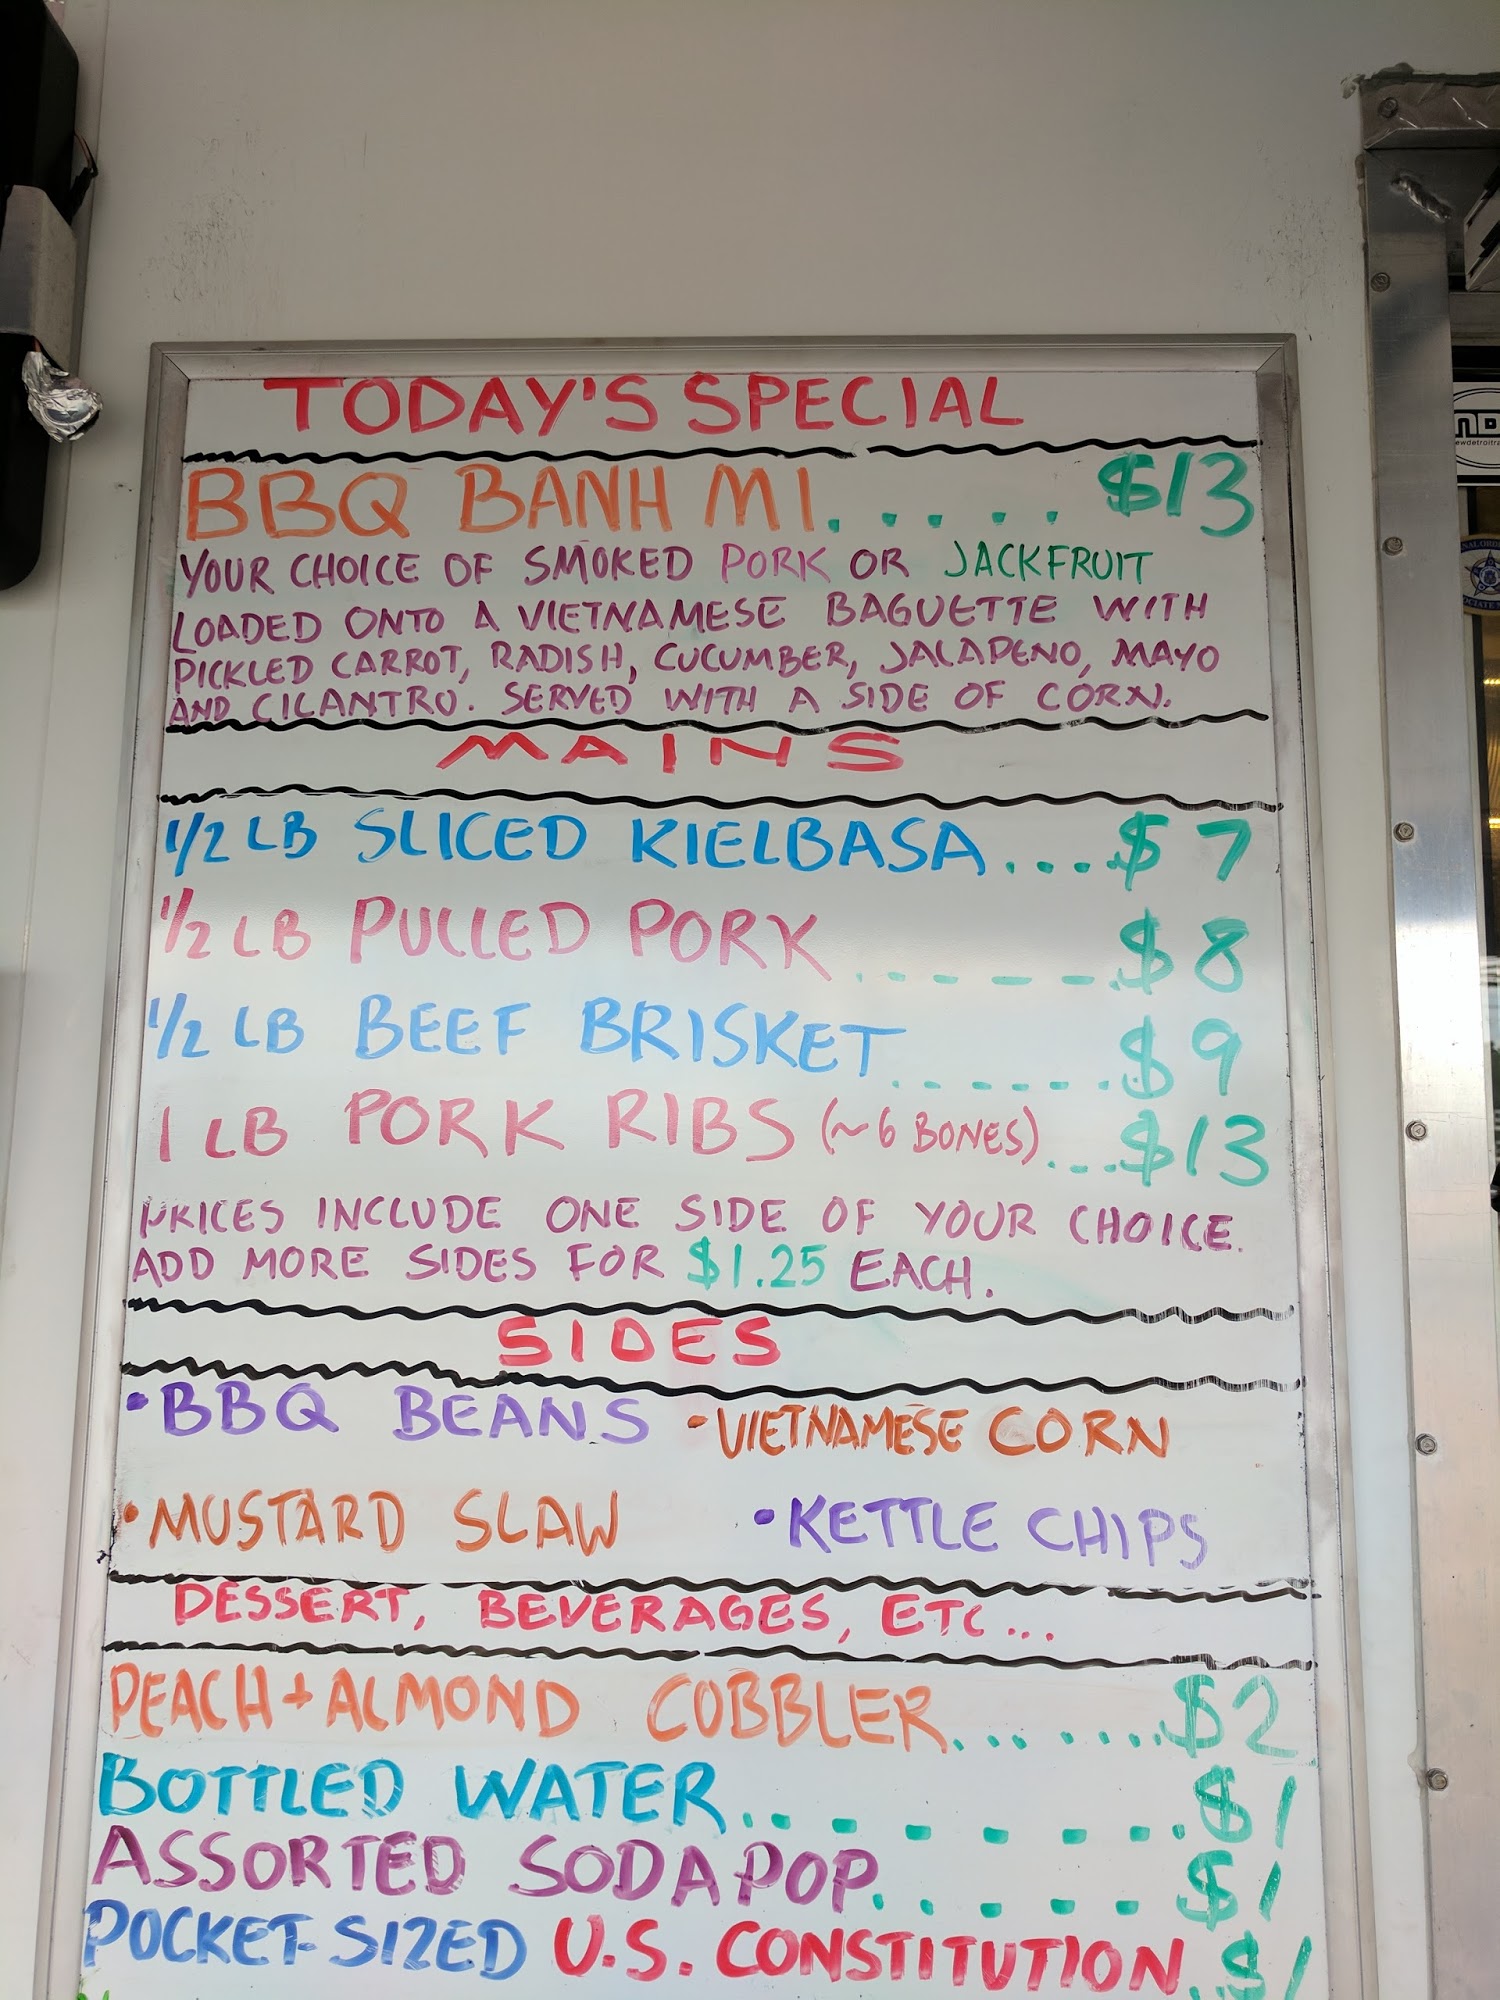 TODAY'S SPECIAL
BBQ BANH MI..... $13
YOUR CHOICE OF SMOKED PORK OR JACKFRUIT
LOADED ONTO A VIETNAMESE BAGUETTE WITH
PICKLED CARROT, RADISH, CUCUMBER, JALAPENO, MAYO
AND CILANTRO. SERVED WITH A SIDE OF CORN.
MAINS
1/2 LB SLICED KIELBASA....$7
1/2 LB PULLED PORK......$8
1/2 LB BEEF BRISKET.......$9
1 LB PORK RIBS (~6 BONES)....$13
PRICES INCLUDE ONE SIDE OF YOUR CHOICE.
ADD MORE SIDES FOR $1.25 EACH.
SIDES
•BBQ BEANS •VIETNAMESE CORN
•MUSTARD SLAW •KETTLE CHIPS
DESSERT, BEVERAGES, ETC...
PEACH+ALMOND COBBLER........$2
BOTTLED WATER.......$1
ASSORTED SODA POP.....$1
POCKET-SIZED U.S. CONSTITUTION..$1